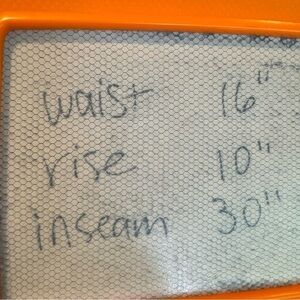 waist 16"
rise 10"
inseam 30"